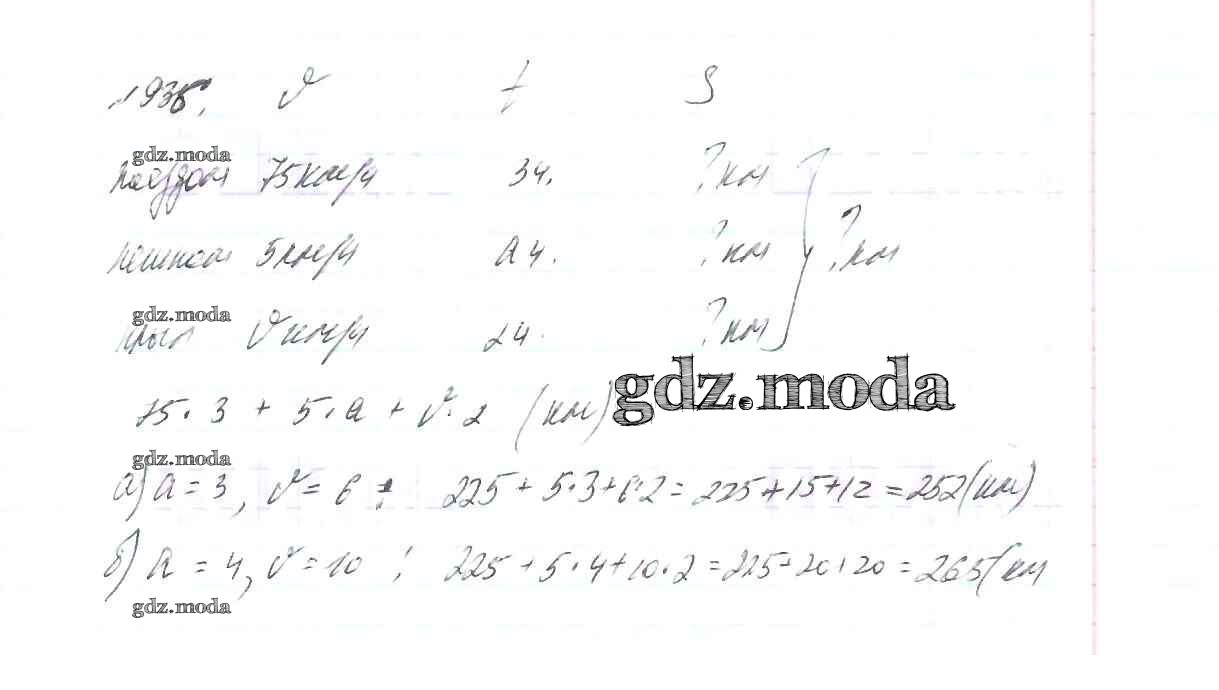 № 938. v t S
gdz.moda
поездом 75 км/ч 3 ч. ? км
пешком 5 км/ч a ч. ? км ? км
gdz.moda
v км/ч 2 ч. ? км
gdz.moda
75 · 3 + 5 · a + v · 2 (км)
gdz.moda
а) a = 3, v = 6 : 225 + 5 · 3 + 6 · 2 = 225 + 15 + 12 = 252 (км)
б) a = 4, v = 10 : 225 + 5 · 4 + 10 · 2 = 225 + 20 + 20 = 265 (км
gdz.moda